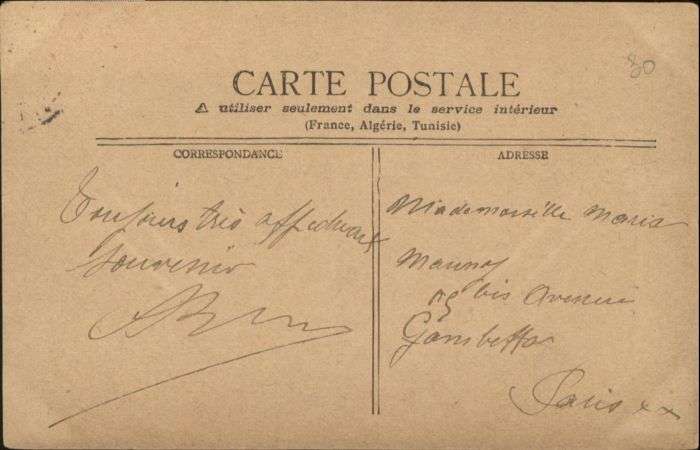 80
CARTE POSTALE
A utiliser seulement dans le service intérieur
(France, Algérie, Tunisie)
CORRESPONDANCE
ADRESSE
Toujours très affectueux
souvenir
Mademoiselle Maria
bis Avenue
Gambetta
Paris xx